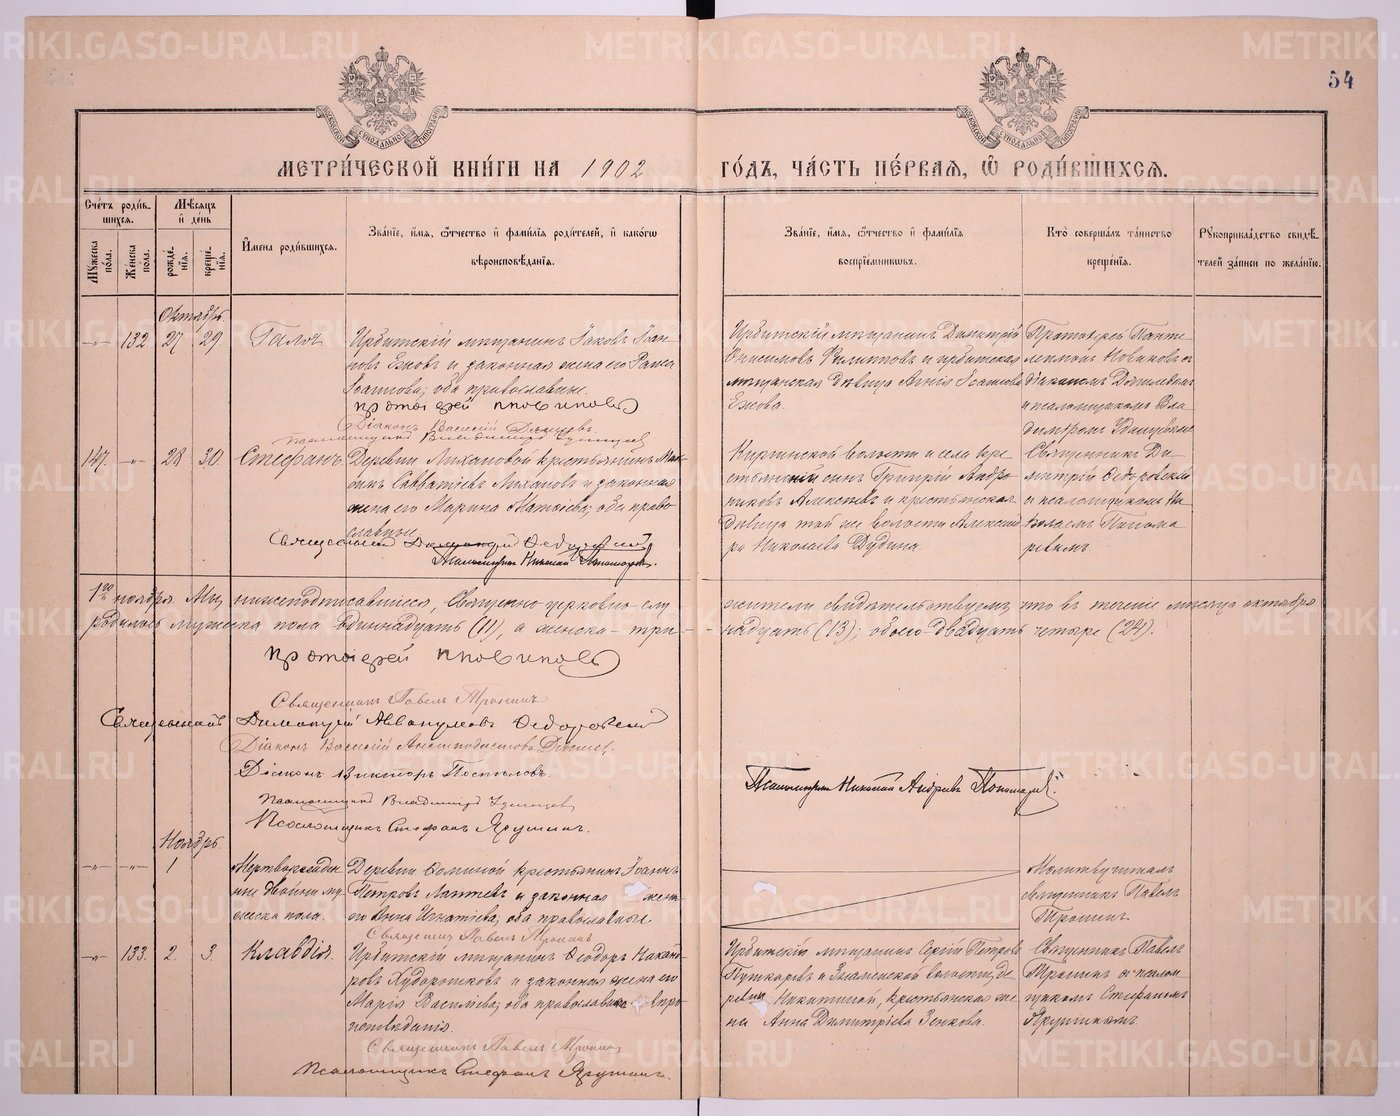 54
МЕТРИ́ЧЕСКОЙ КНИ́ГИ НА 1902 ГО́ДЪ, ЧА́СТЬ ПЕ́РВАЯ, Ѿ РОДИ́ВШИХСЯ.
Сче́тъ роди́вшихся.
Му́жеска по́ла.
Же́нска по́ла.
Мѣ́сяцъ и҆ де́нь
рожде́нїя.
креще́нїя.
И҆мена̀ роди́вшихся.
Зва́нїе, и҆́мя, ѻ҆́тчество и҆ фами́лїя роди́телей, и҆ како́гѡ вѣроисповѣ́данїя.
Зва́нїе, и҆́мя, ѻ҆́тчество и҆ фами́лїя воспрїе́мникѡвъ.
Кто̀ соверша́лъ та́инство креще́нїя.
Рꙋкоприкла́дство свидѣ́телей за́писи по жела́нїю.
Октябрь
132 27 29
Ирбитскій мѣщанинъ Іаковъ Іоан-
новъ Ежовъ и законная жена его Раиса
Іоаннова; оба православные.
Протоіерей П Новиковъ
Діаконъ Василій
Псаломщикъ Владимиръ
Ирбитскій мѣщанинъ Димитрій
Онисимовъ Филипповъ и ирбитская
мѣщанская дѣвица Агнія Іоаннова
Ежова.
Протоіерей Панте-
леимонъ Новиковъ съ
діакономъ
и псаломщикомъ Вла-
димиромъ
147. 28 30. Стефанъ
Деревни Лихановой крестьянинъ Мак-
симъ Савватіевъ Лихановъ и законная
жена его Марина Матѳіева; оба право-
славные.
Священникъ Димитрій Ѳедоровскій
Псаломщикъ Николай Пономаревъ.
Киргинской волости и села кре-
стьянскій сынъ Григорій Андро-
никовъ Алексѣевъ и крестьянская
дѣвица той же волости Александ-
ра Николаева Дудина.
Священникъ Ди-
митрій Ѳедоровскій
съ псаломщикомъ Ни-
колаемъ Понома-
ревымъ.
1го ноября. Мы, нижеподписавшіеся, Священно церковно-слу жители свидѣтельствуемъ, что въ теченіе мѣсяца октября
родилось мужеска пола одиннадцать (11), а женска – три- надцать (13); обоего двадцать четыре (24).
Протоіерей П Новиковъ
Священникъ Павелъ Тронинъ
Священникъ Димитрій Аввакумовъ Ѳедоровскій
Діаконъ Василій
Діаконъ Викторъ Поспѣловъ.
Псаломщикъ Владимиръ
Псаломщикъ Стефанъ Ярушинъ.
Псаломщикъ Николай Андреевъ Пономаревъ.
Ноябрь.
1
Мертворожден-
ные двойни му-
жеска пола.
Деревни Ѳоминой крестьянинъ Іоаннъ
Петровъ Лаптевъ и законная жена
его Анна Игнатіева; оба православные.
Священникъ Павелъ Тронинъ
Молитву читалъ
священникъ Павелъ
Тронинъ.
133. 2. 3. Клавдія.
Ирбитскій мѣщанинъ Ѳеодоръ Никано-
ровъ Худорожковъ и законная жена его
Марія Василіева; оба православнаго вѣро-
исповѣданія.
Священникъ Павелъ Тронинъ
Псаломщикъ Стефанъ Ярушинъ.
Ирбитскій мѣщанинъ Сергій Петровъ
Пушкаревъ и Знаменской волости, де-
ревни Никитиной, крестьянская же-
на Анна Димитріева Зенкова.
Священникъ Павелъ
Тронинъ съ псалом-
щикомъ Стефаномъ
Ярушинымъ.
METRIKI.GASO-URAL.RU